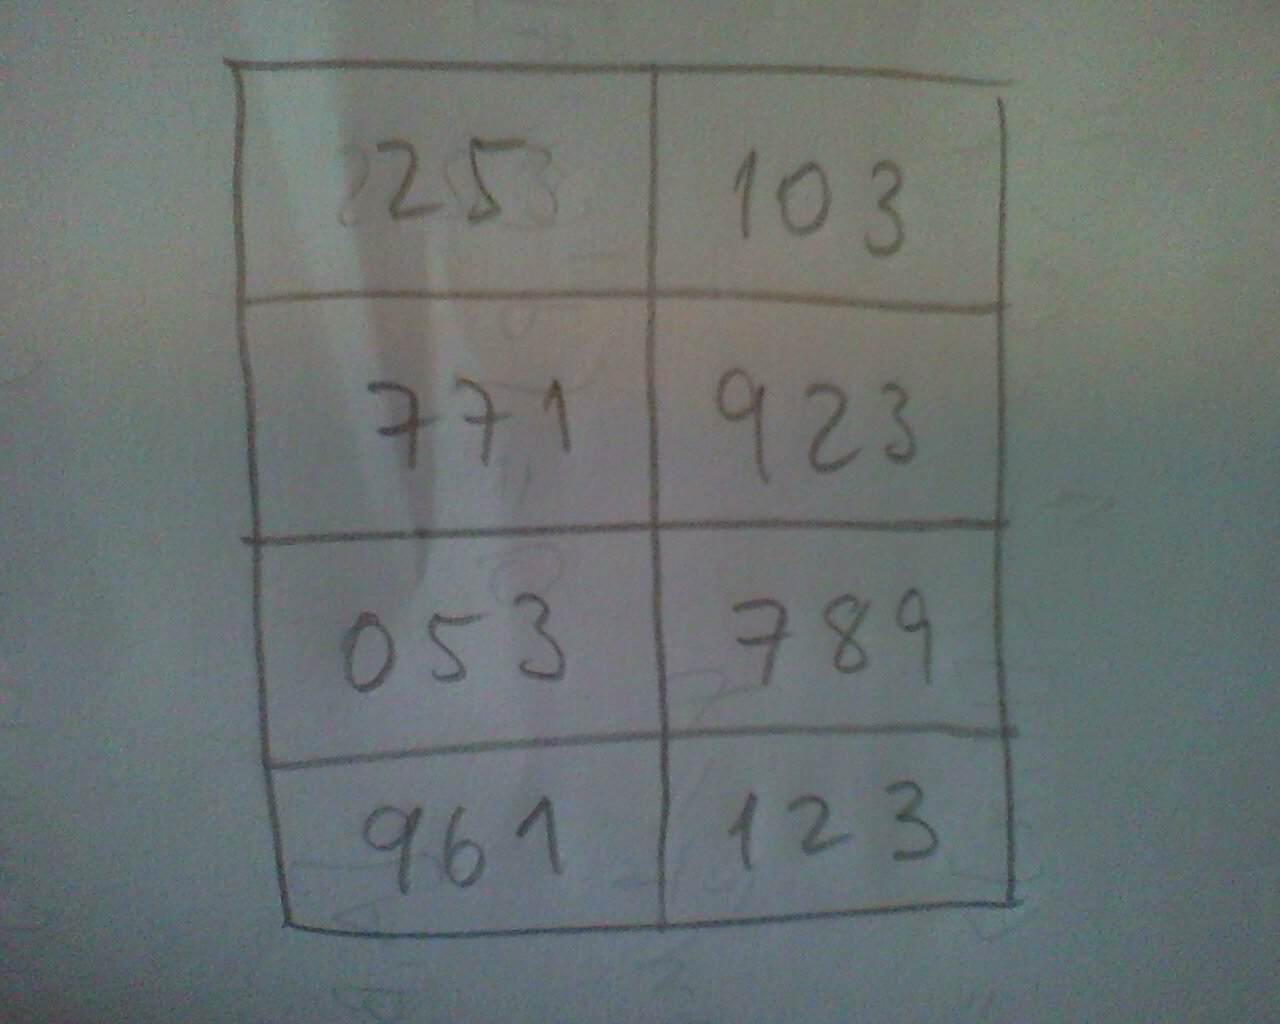 25 103
771 923
053 789
961 123